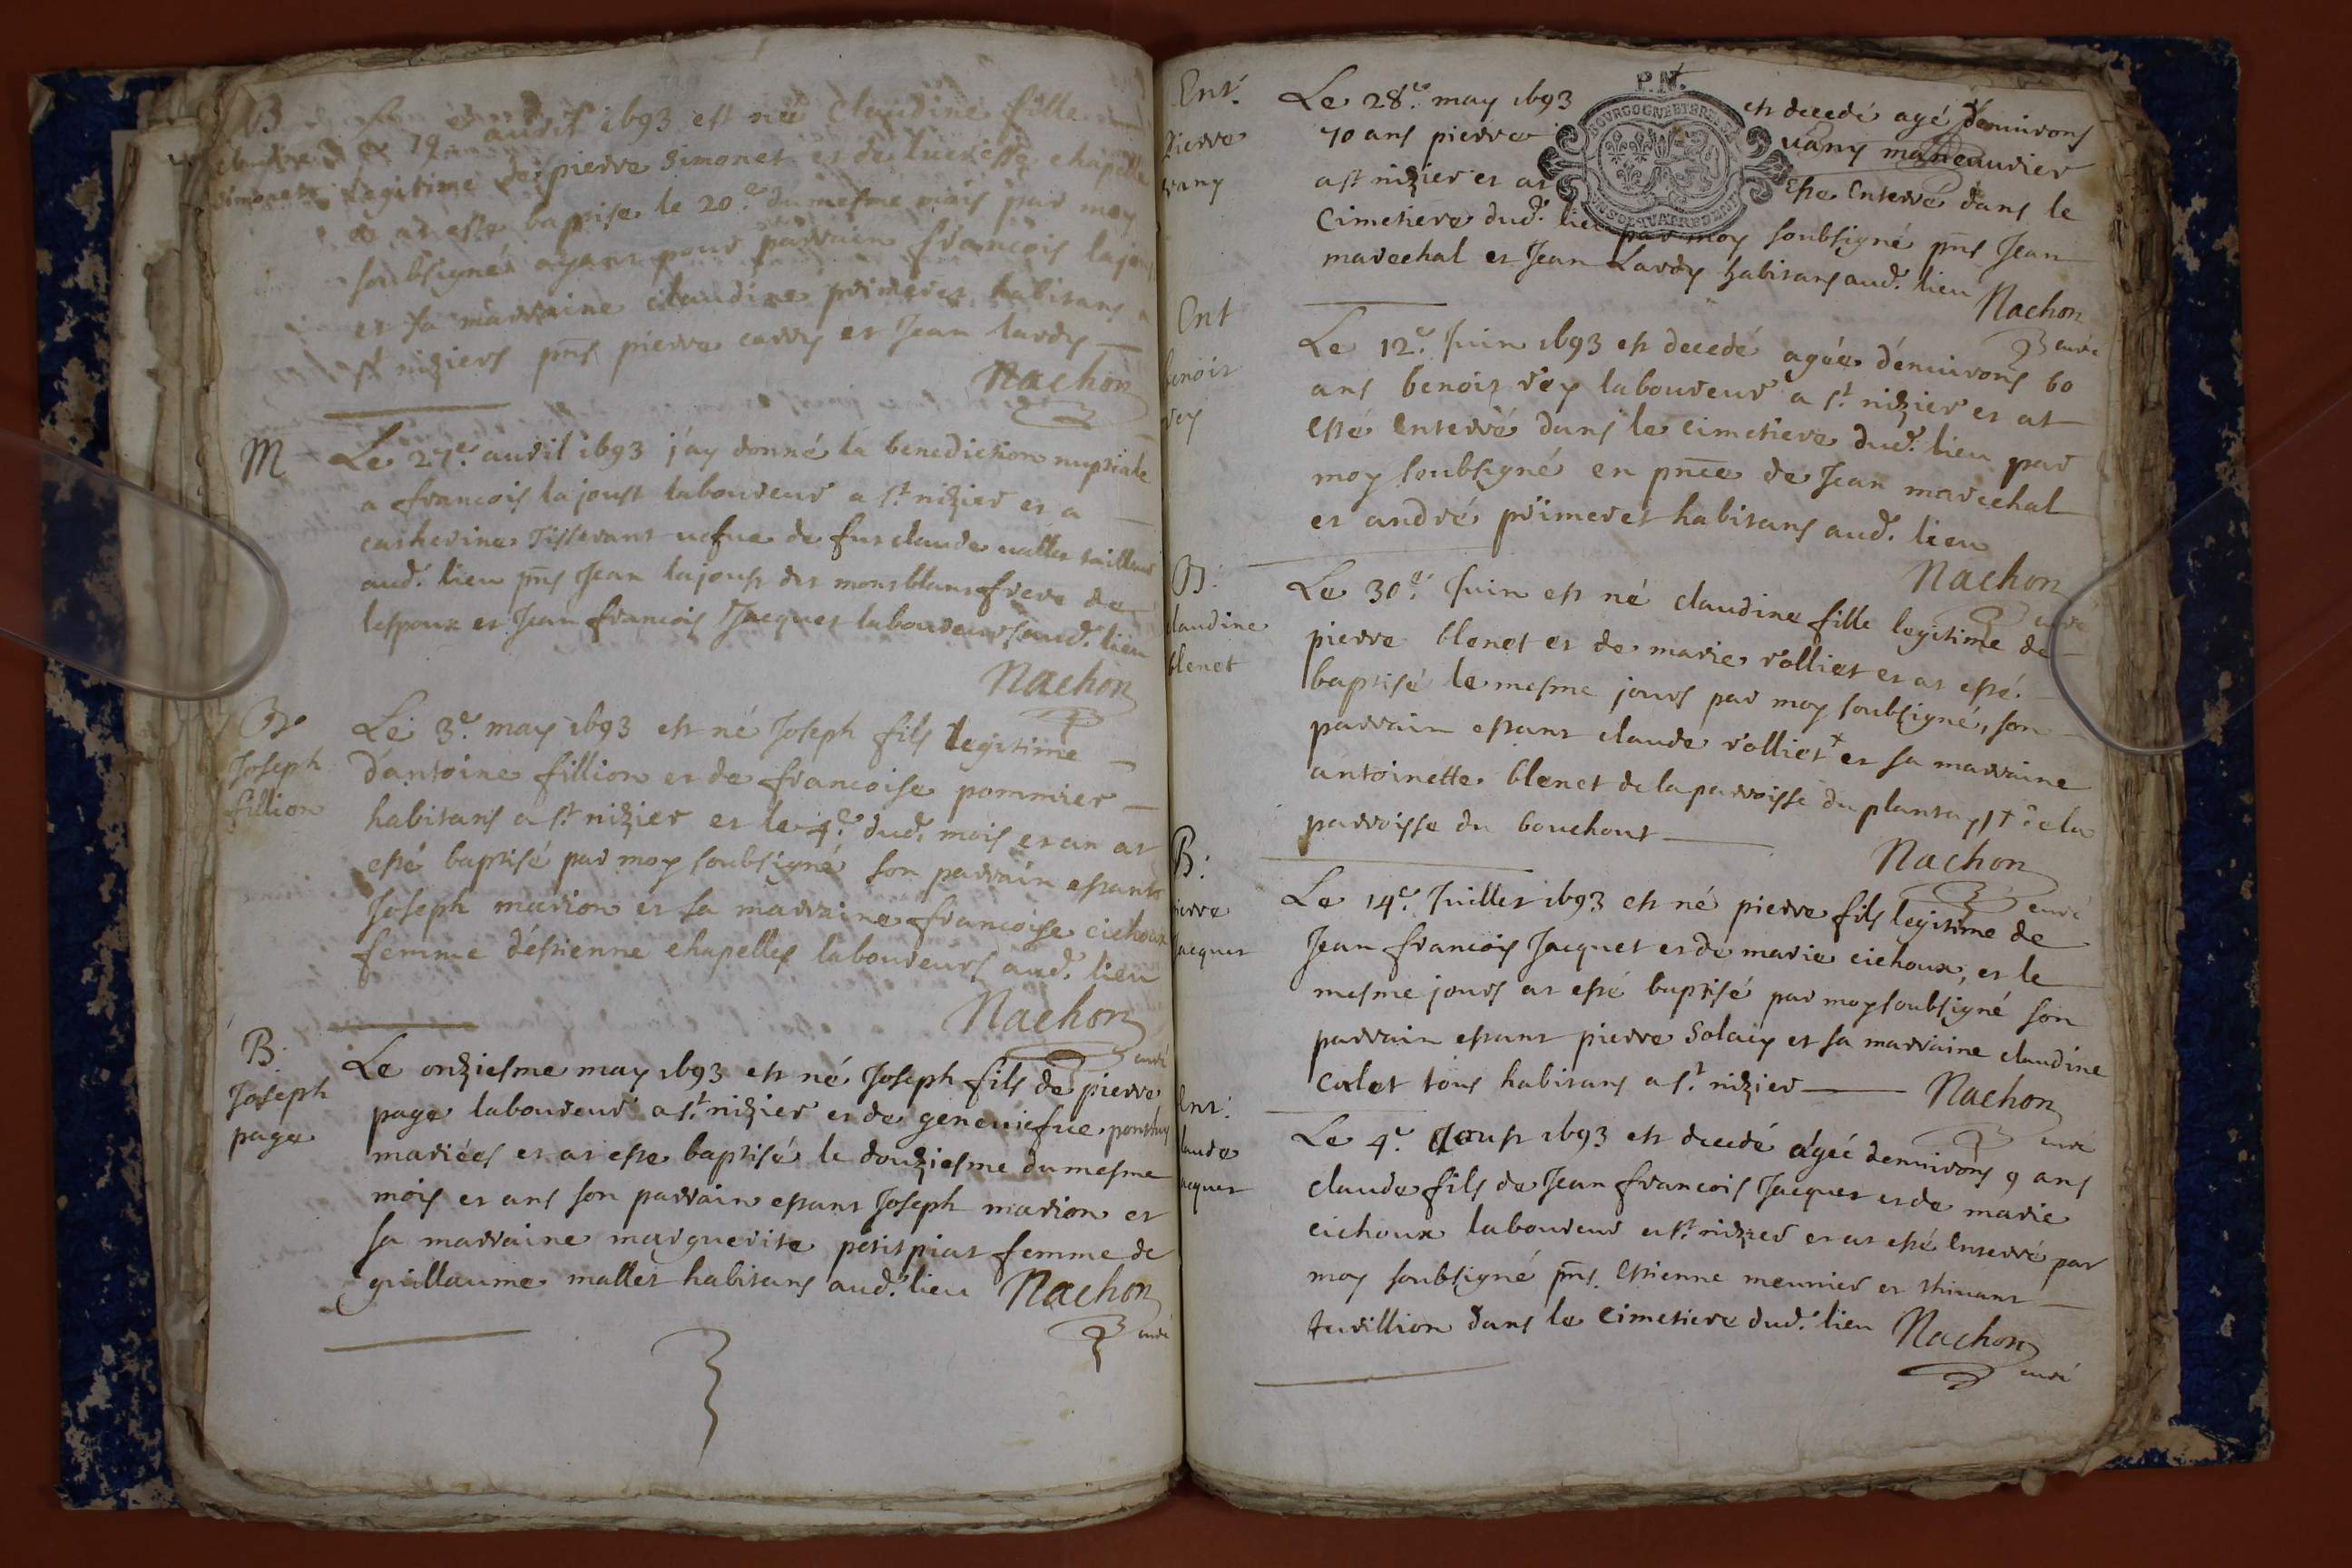 B
claudine
simonet
Le 19 avril 1693 est née Claudine fille
legitime de pierre Simonet et de lucresse chapelle
et at esté baptise le 20e du mesme mois par moy
soubsigné ayant pour parrain francois lajoust
et sa marraine claudine primeret habitans a
st niziers pnts pierre carry et Jean lardy
Nachon
M
Le 27e avril 1693 j'ay donné la benediction nuptiale
a francois lajoust laboureur a st nizier et a
catherine Tisserant vefue de fut claude vallet tailleur
aud. lieu pnts Jean lajoust des montblanc frere de
lespoux et Jean francois Jacquet laboureurs aud. lieu
Nachon
B.
Joseph
fillion
Le 3e may 1693 est né Joseph fils legitime
d'antoine fillion et de francoise pommier
habitans a st nizier et le 4e dud. mois et an at
esté baptisé par moy soubsigné son parrain estant
Joseph marion et sa marraine francoise cichoux
femme d'estienne chapelles laboureurs aud. lieu
Nachon
curé
B.
Joseph
page
Le onziesme may 1693 est né Joseph fils de pierre
page laboureur a st nizier et de geneuiefue
mariées et at este baptisé le douziesme du mesme
mois et ans son parrain estant Joseph marion et
sa marraine marguerite petitpiat femme de
guillaume mallet habitans aud. lieu Nachon
curé
P.N.
BOURGOGNE ET BRESSE
Ent.
Pierre
vany
Le 28e may 1693 est decedé agé d'enuirons
70 ans pierre vany maneauurier
a st nizier et at este Enterré dans le
Cimetiere dud. lieu par moy soubsigné pnts Jean
marechal et Jean Lardy habitans aud. lieu
Nachon
curé
Ent
benoit
rey
Le 12e Juin 1693 est decedé agée d'enuirons 60
ans benoit rey laboureur a st nizier et at
esté enterré dans le cimetiere dud. lieu par
moy soubsigné en pnce de Jean marechal
et andré primeret habitans aud. lieu
Nachon
curé
B.
claudine
blenet
Le 30e Juin est né claudine fille legitime de
pierre blenet et de marie rolliet et at esté
baptisé le mesme jours par moy soubsigné, son
parrain estant claude rolliet + et sa marraine
antoinette blenet de la parroisse du plantay, + de la
parroisse du bouchout
Nachon
curé
B.
pierre
Jacquet
Le 14e Juillet 1693 est né pierre fils legitime de
Jean francois Jacquet et de marie cichoux, et le
mesme jours at esté baptisé par moy soubsigné son
parrain estant pierre Solacy et sa marraine claudine
calet tous habitans a st nizier Nachon
curé
Ent.
claude
Jacquet
Le 4e Aoust 1693 est decedé agée denuirons 9 ans
claude fils de Jean francois Jacquet et de marie
cichoux laboureur a st nizier et at esté Enterré par
moy soubsigné pnts Estienne meunier et thiuant
turillion dans le Cimetiere dud. lieu Nachon
curé